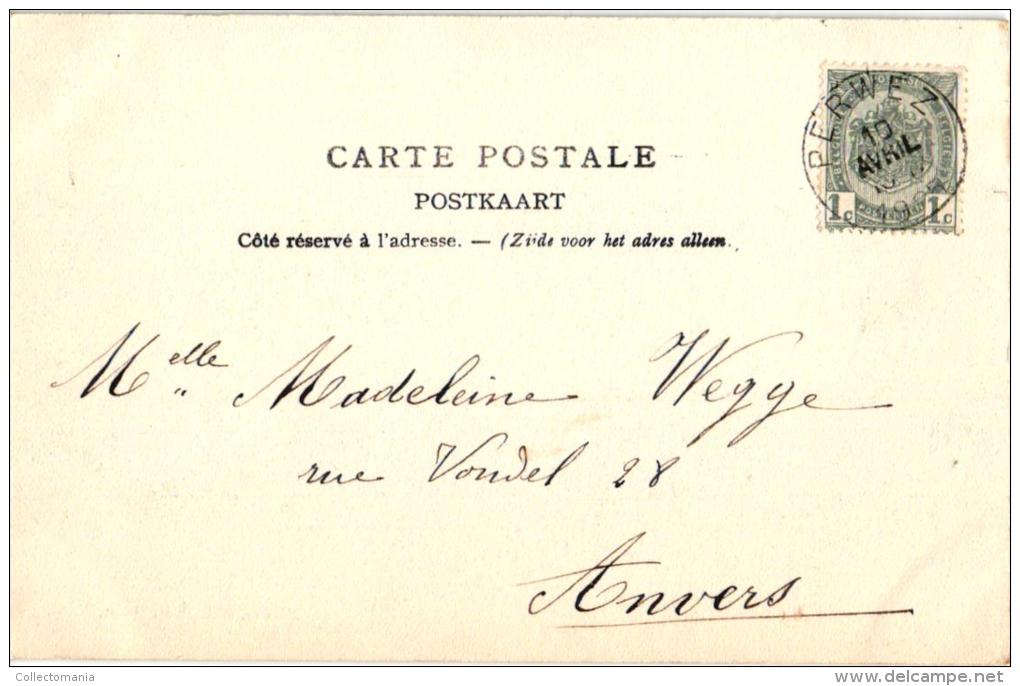 PERWEZ
10
AVRIL
1c 1c
CARTE POSTALE
POSTKAART
Côté réservé à l'adresse. — (Zijde voor het adres alleen.
Melle Madeleine Wegge
rue Vondel 28
Anvers
Collectomania
delcampe.net